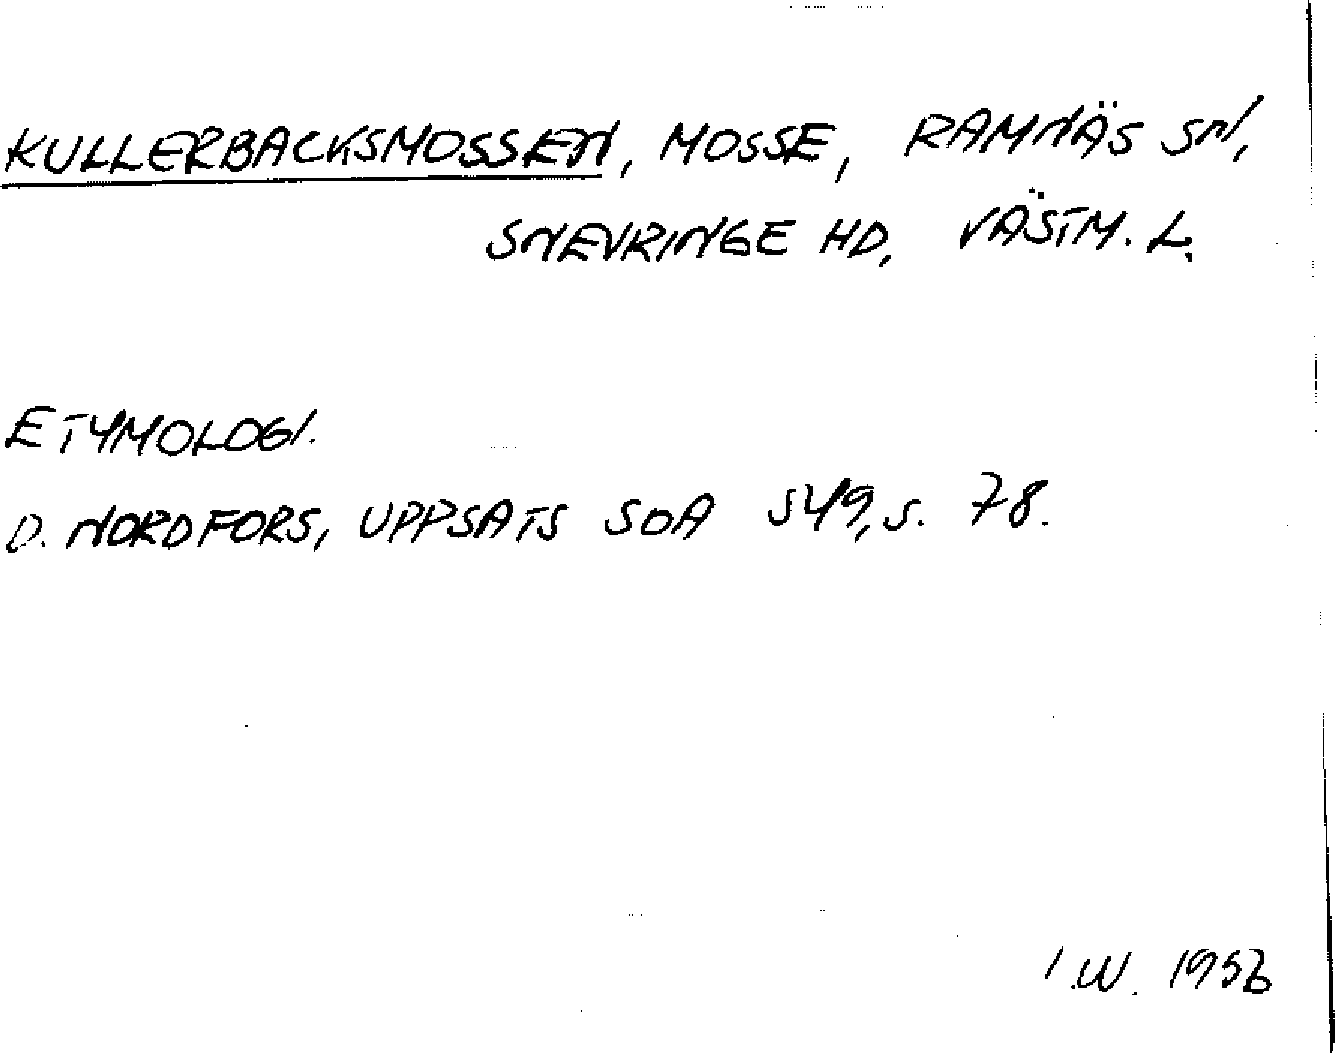 KULLERBACKSMOSSEN, MOSSE, RAMNÄS SN,
SNEVRINGE HD, VÄSTM. L.
ETYMOLOGI.
D. NORDFORS, UPPSATS SOA 549, s. 78.
I.W. 1956